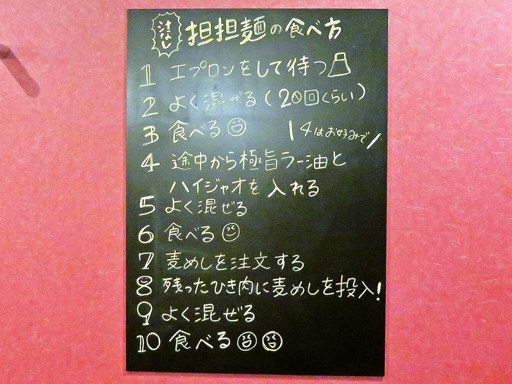 汁なし 担担麺の食べ方
1 エプロンをして待つ
2 よく混ぜる(20回くらい)
3 食べる
\4はお好みで/
4 途中から極旨ラー油と
ハイジャオを入れる
5 よく混ぜる
6 食べる
7 麦めしを注文する
8 残ったひき肉に麦めしを投入!
9 よく混ぜる
10 食べる